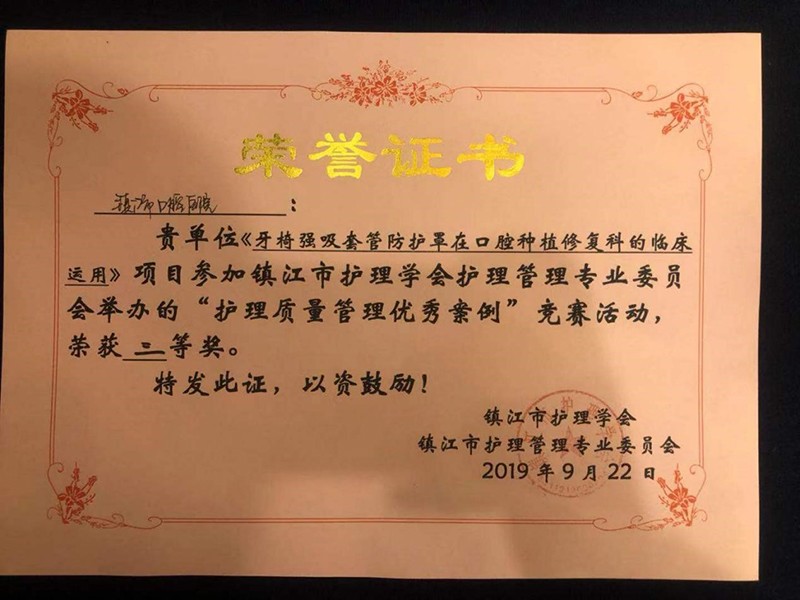 荣誉证书
镇江市口腔医院：
贵单位《牙椅强吸套管防护罩在口腔种植修复科的临床
运用》项目参加镇江市护理学会护理管理专业委员
会举办的“护理质量管理优秀案例”竞赛活动，
荣获 三 等奖。
特发此证，以资鼓励！
镇江市护理学会
镇江市护理管理专业委员会
2019 年 9 月 22 日